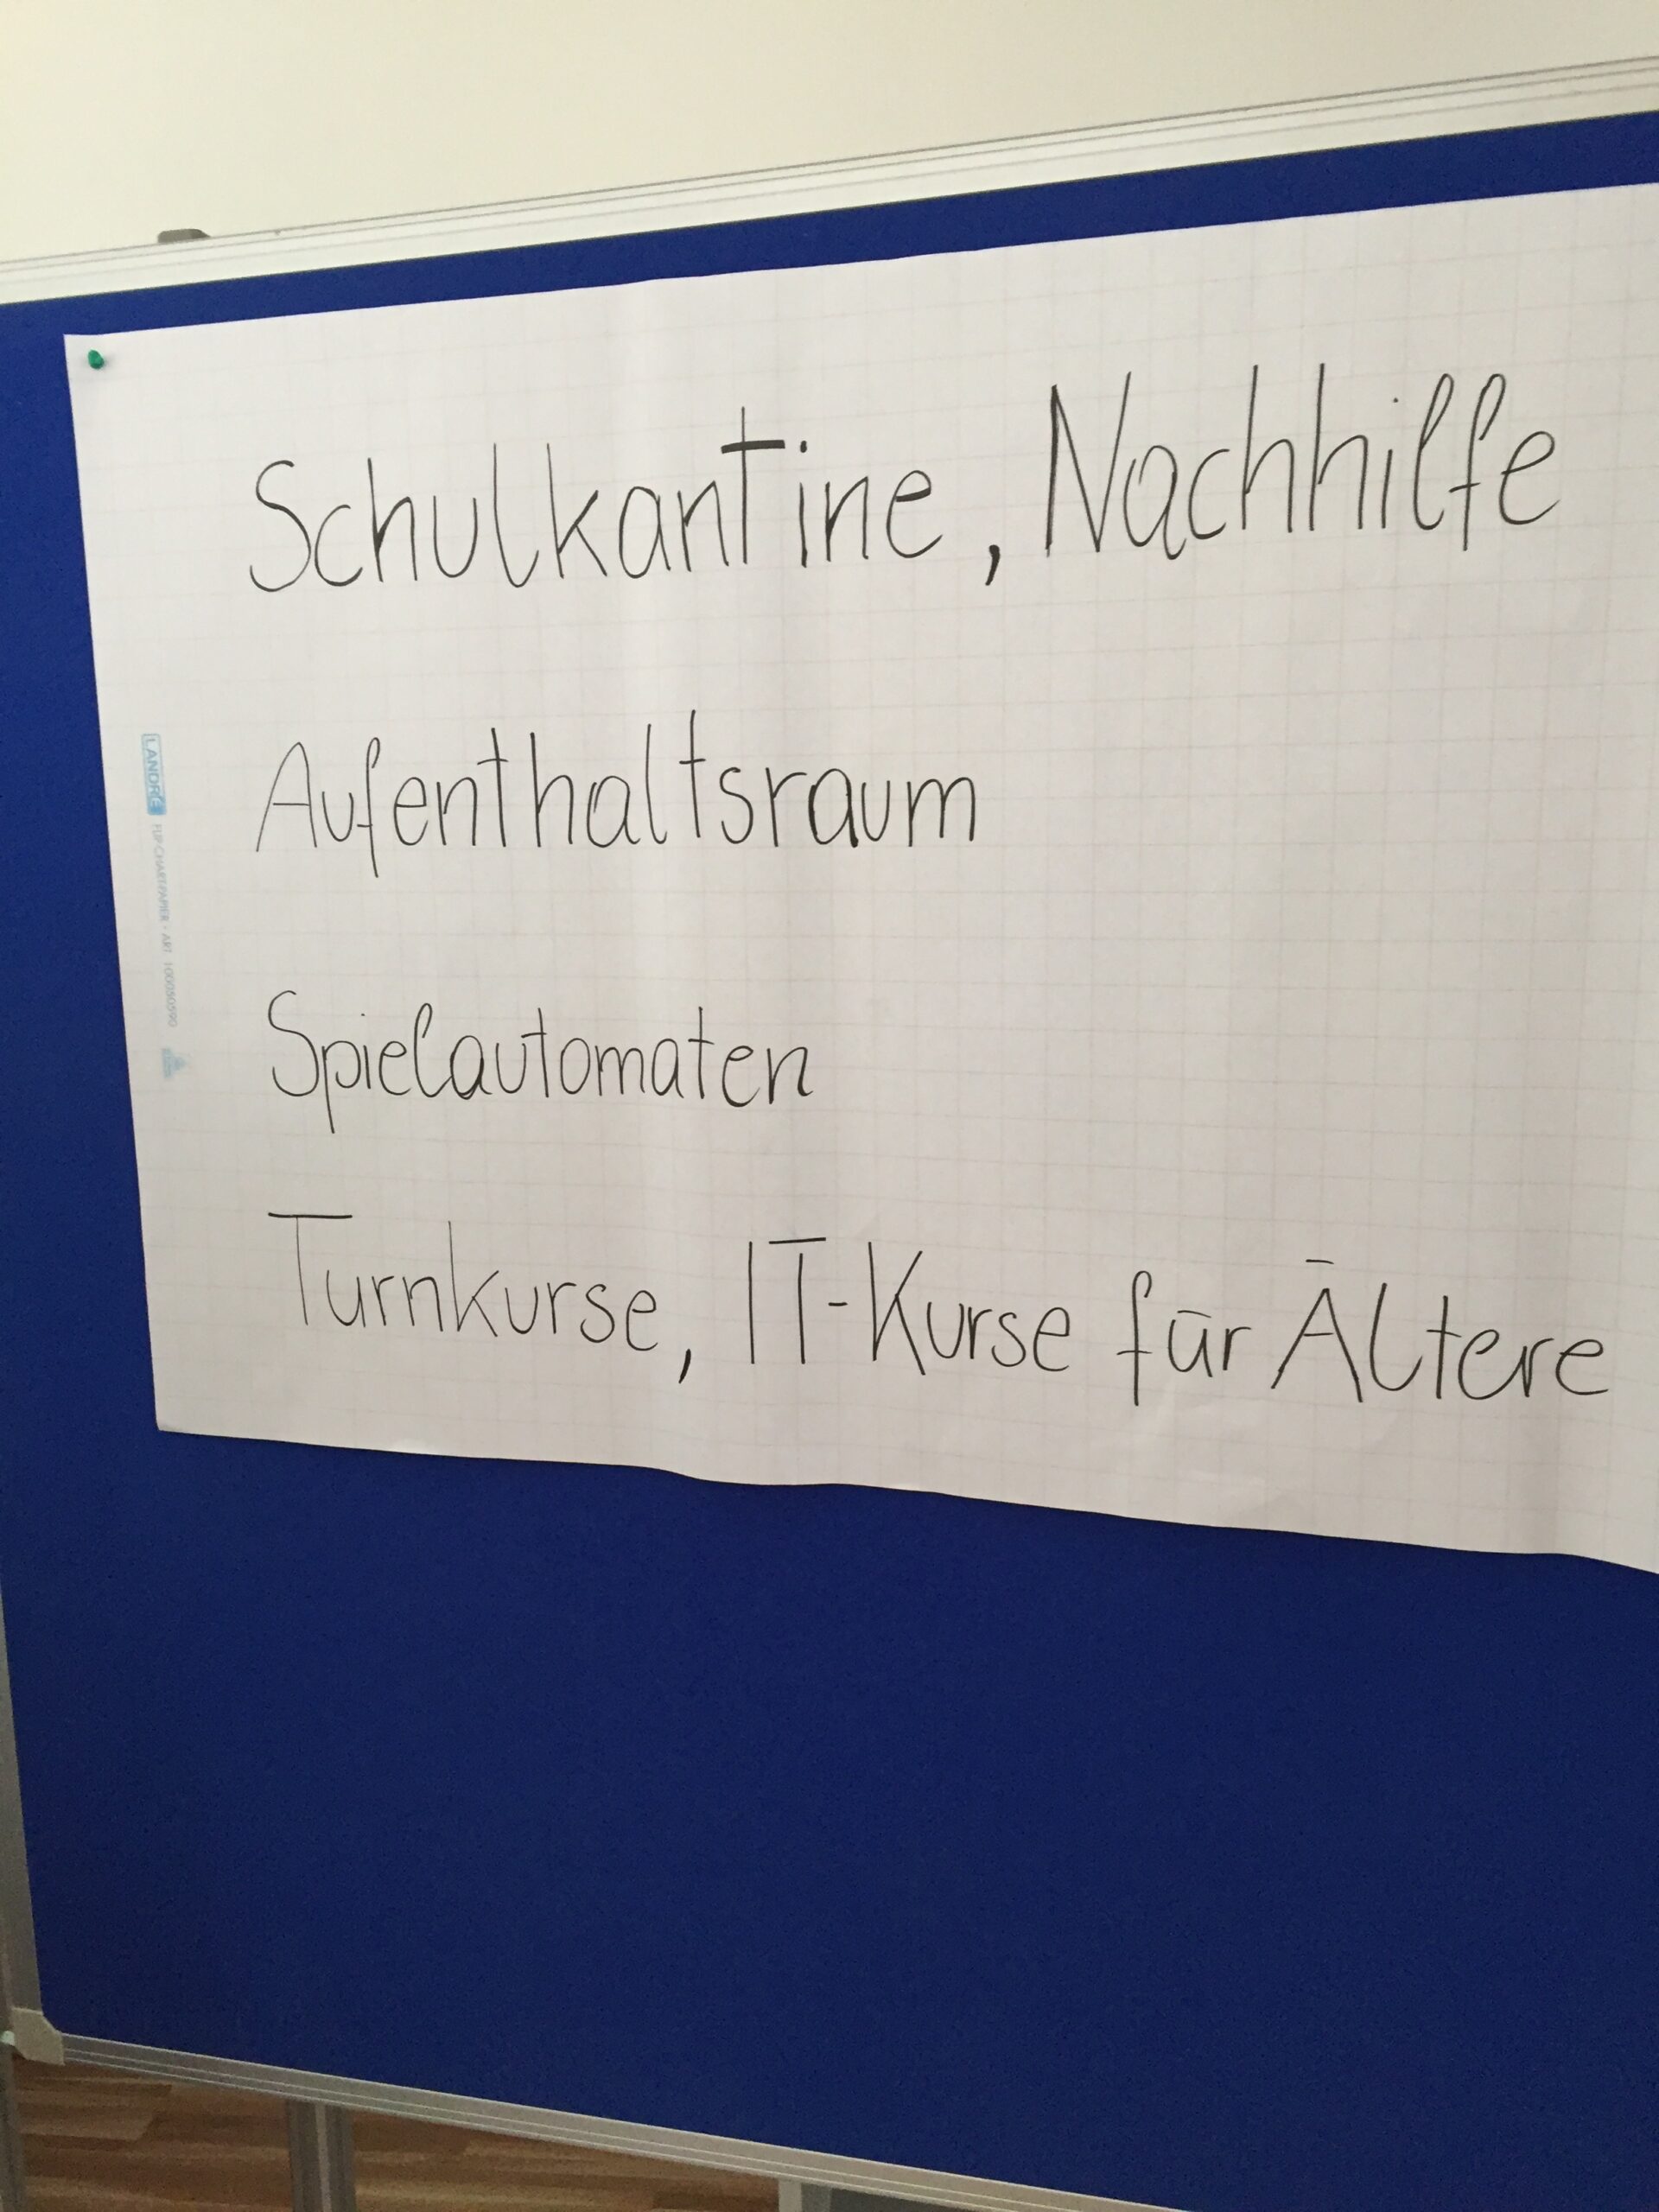 Schulkantine, Nachhilfe
Aufenthaltsraum
Spielautomaten
Turnkurse, IT-Kurse für Ältere
LANDRÉ FLIPCHART-PAPIER · ART. 100050590